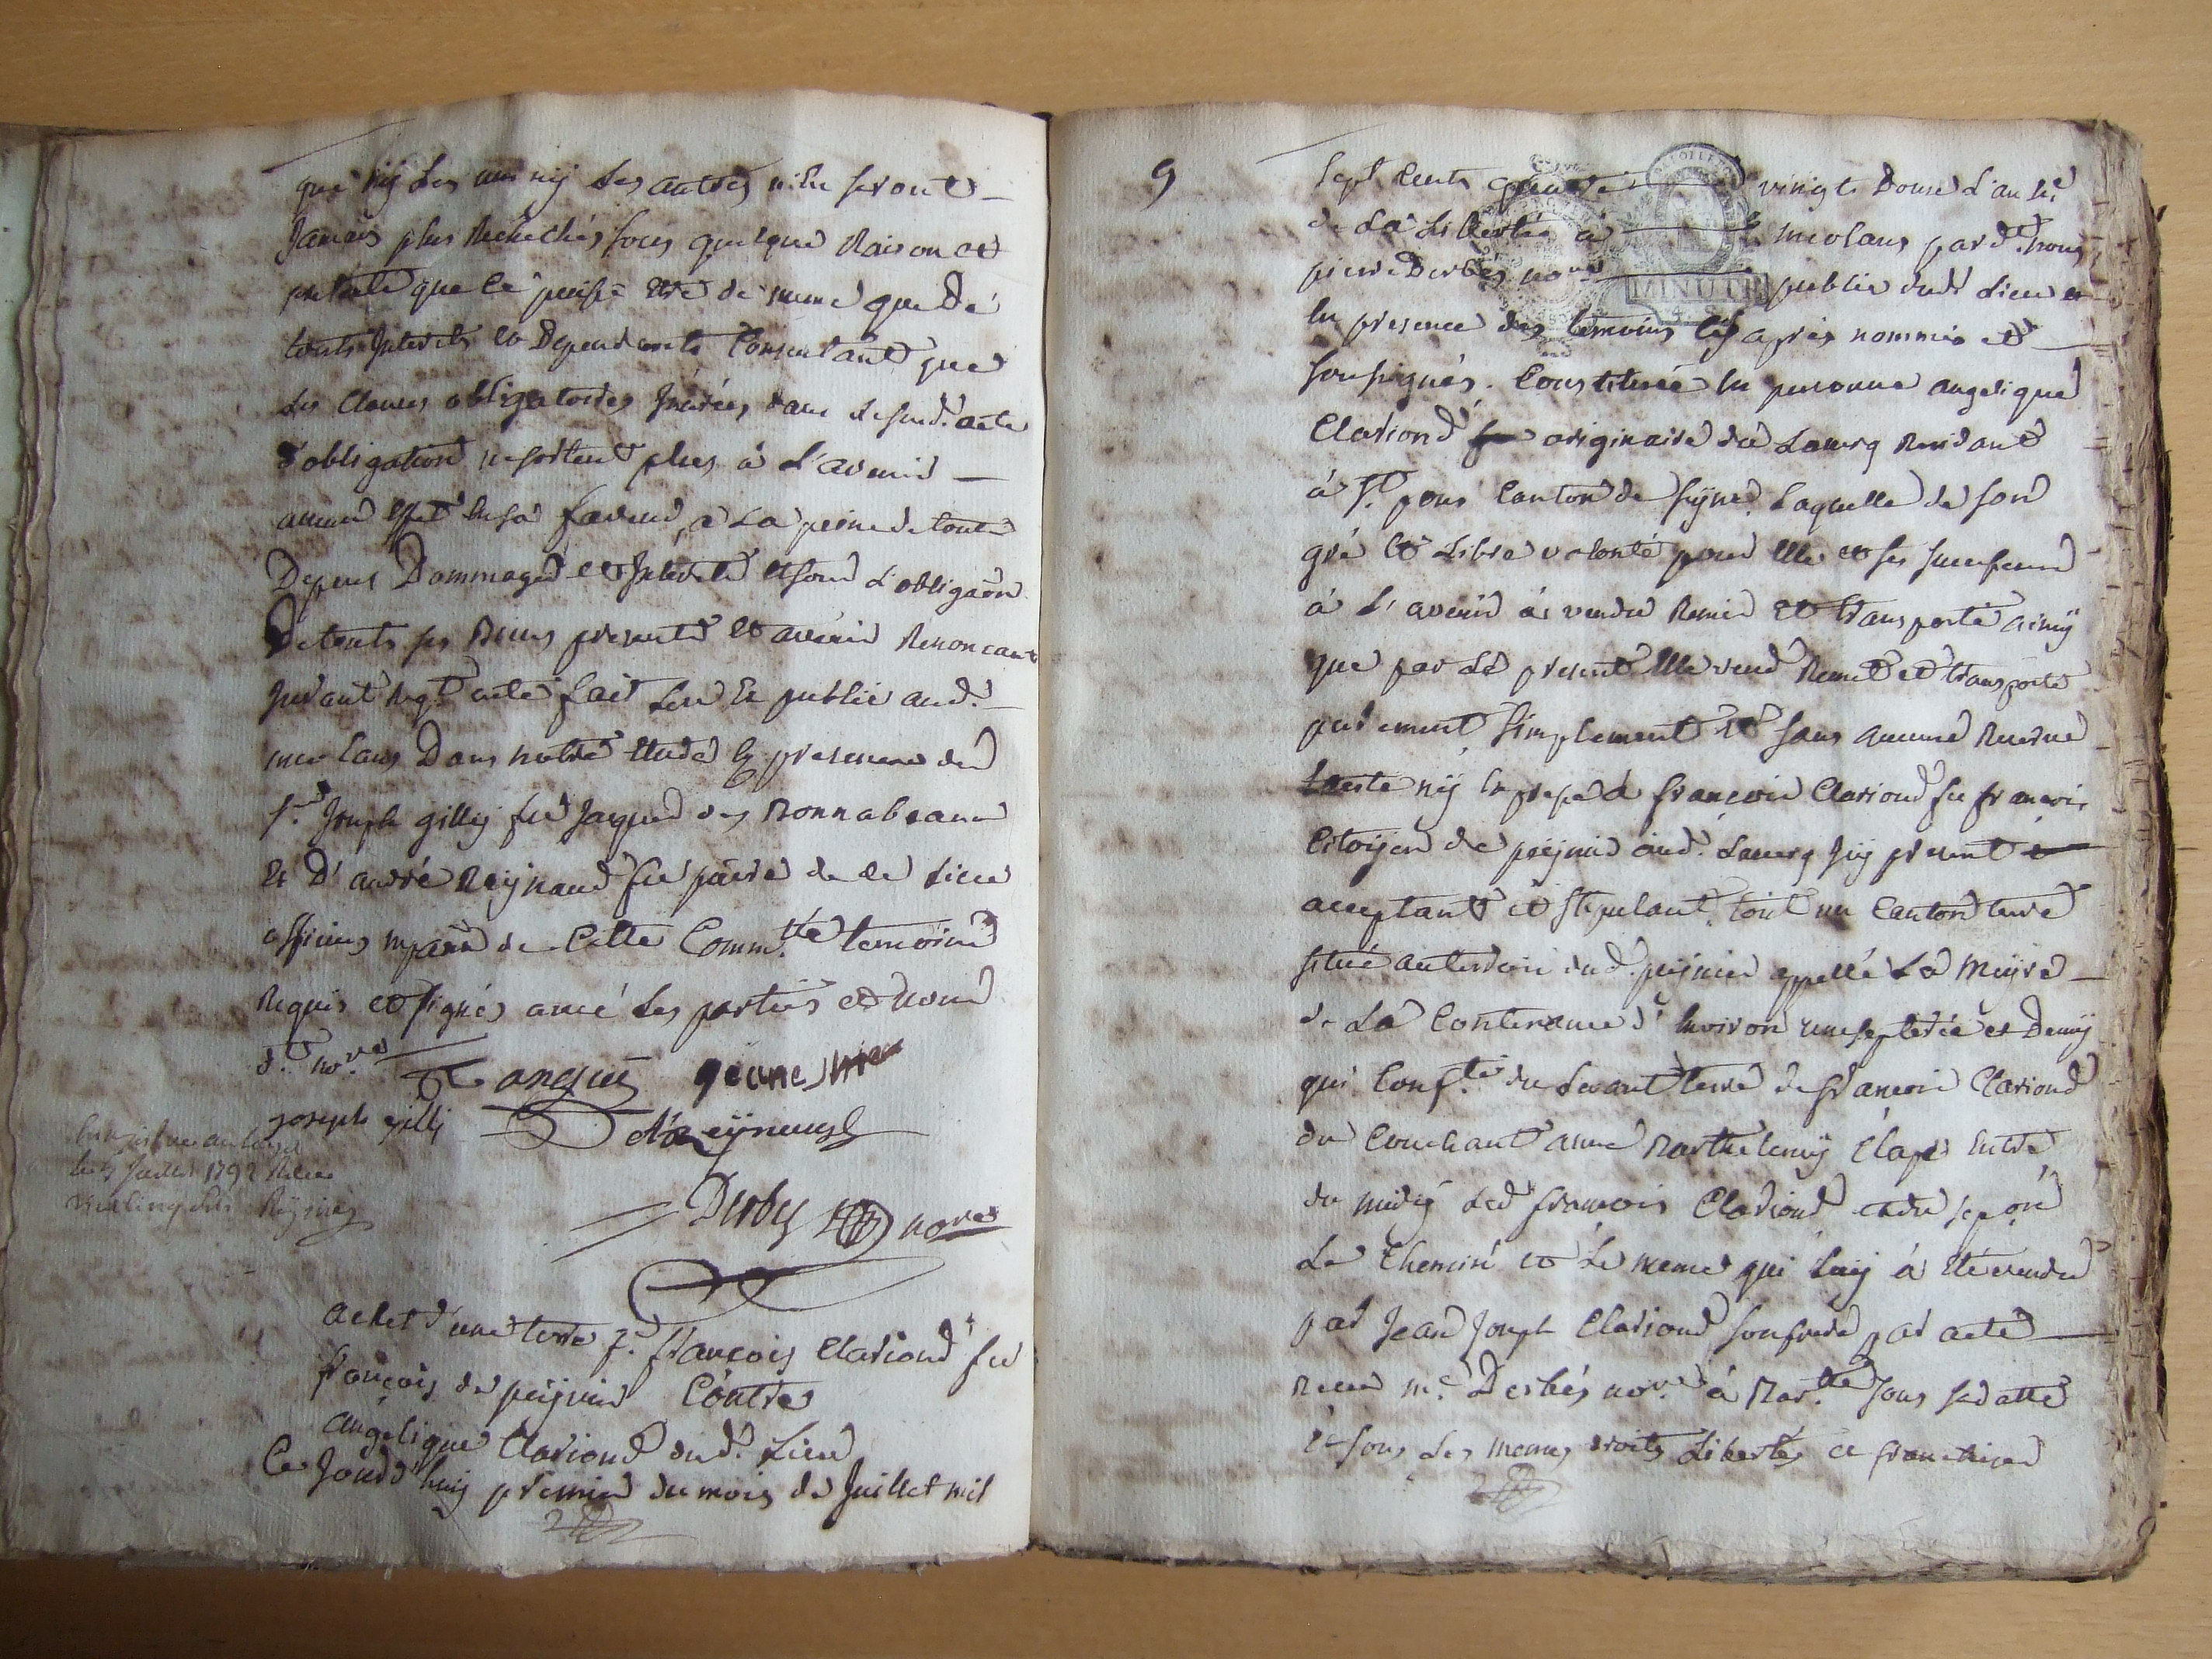 que nÿ Les uns nÿ Les autres n'en seront
Jamais plus Recherchés sous quelque Raison et
pretexte que ce puisse etre de meme que de
touts Interets et Dependents Consentant que
Les Clauses obligatoires Inserées dans Le susd. acte
d'obligation ne sortent plus à L'avenir
aucun effet en sa faveur, a La peine de touts
Depens Dommages et Interets et sous L'obligaõn
De touts ses Biens presents et avenir Renoncant
Jurant Req.t acte fait Leu Et publié aud.
meolans Dans notre etude En presence du
s.r Joseph gilly feu Jacques des Bonnabeaux
Et D'andré Reÿnaud feu pierre de ce Lieu
officiers mpaux de Cette Comm.té temoins
Requis et signés avec Les parties et nous
d.t no.re
jeanesme
joseph gilli
A Reÿneaud
Derbez nore
Juillet 1792
achet d'une terre p.r françois Clariond feu
françois de peÿnier Contre
angelique Clariond dud. Lieu
Ce Jourd'huÿ premier du mois de Juillet mil
9
sept Cents quatre vingts Douze L'an 4e
de La Liberté à meolans pard.t nous
pierre Derbés no.re public dud. Lieu et
MINUTE
En presence des temoins Cÿ après nommés et
soussignés. Constituée En personne angelique
Clariond originaire du Lauzq Residant
à s.t pons Canton de seÿne, Laquelle de son
gré et Libre volonté pour Elle et ses successeurs
à L'avenir à vendu Remis et transporté ainsÿ
que par Le present Elle vend Remet et transporte
purement, simplement et sans aucune Reserve
tacite nÿ Expresse à françois Clariond feu françois
Citoÿen de peÿnier aud. Lauzq Icÿ present
acceptant et stipulant, tout un Canton terre
situé au terroir dud. peÿnier appellé La Meÿre
de La Contenance d'Environ une septerée et Demÿ
qui Conf.te du Levant terre de francois Clariond
du Couchant avec Barthelemÿ Clapier Entre
du midÿ Led. francois Clariond et du sep.on
Le Chemin et Le meme qui Luÿ à eté vendu
par Jean Joseph Clariond son frere par acte
Receu m.e Derbés no.re à Bar.tte sous sa datte
Et sous Les memes droits Libertés et franchises